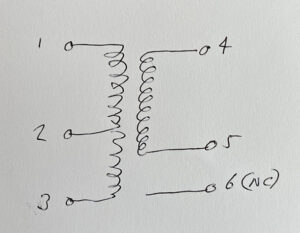 1
4
2
5
3
6 (NC)